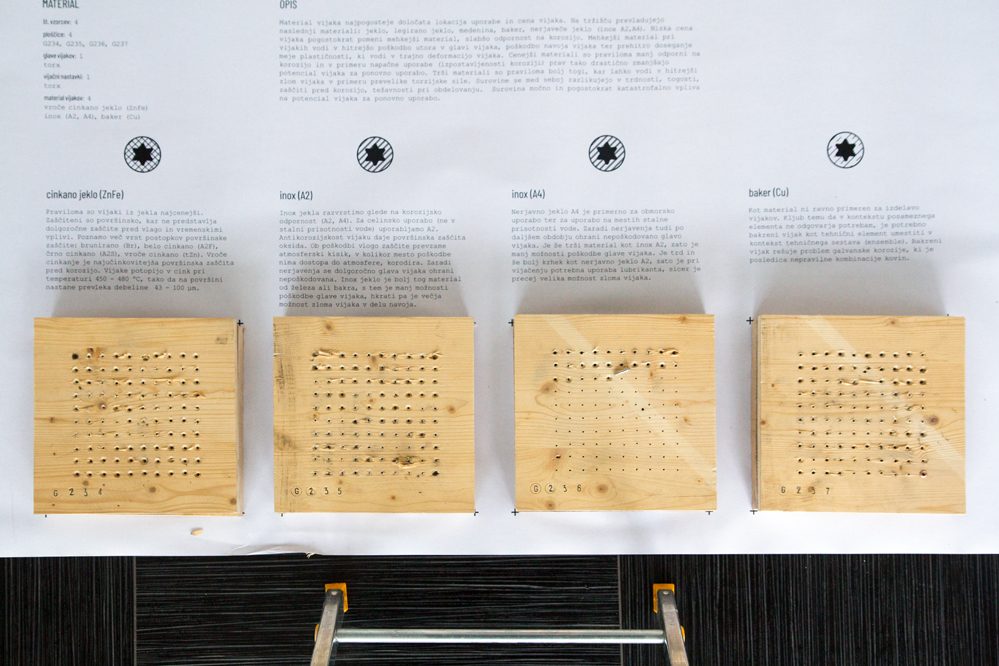 MATERIAL
št. vzorcev: 4
ploščice: 4
G234, G235, G236, G237
glave vijakov: 1
torx
vijačni nastavki: 1
torx
material vijakov: 4
vroče cinkano jeklo (ZnFe)
inox (A2, A4), baker (Cu)
OPIS
Material vijaka najpogosteje določata lokacija uporabe in cena vijaka. Na tržišču prevladujejo
naslednji materiali: jeklo, legirano jeklo, medenina, baker, nerjaveče jeklo (inox A2,A4). Nizka cena
vijaka pogostokrat pomeni mehkejši material, slabšo odpornost na korozijo. Mehkejši material pri
vijakih vodi v hitrejšo poškodbo utora v glavi vijaka, poškodbo navoja vijaka ter prehitro doseganje
meje plastičnosti, ki vodi v trajno deformacijo vijaka. Cenejši materiali so praviloma manj odporni na
korozijo in v primeru napačne uporabe (izpostavljenosti koroziji) prav tako drastično zmanjšajo
potencial vijaka za ponovno uporabo. Trši materiali so praviloma bolj togi, kar lahko vodi v hitrejši
zlom vijaka v primeru prevelike torzijske sile. Surovine se med seboj razlikujejo v trdnosti, togosti,
zaščiti pred korozijo, težavnosti pri obdelovanju. Surovine močno in pogostokrat katastrofalno vpliva
na potencial vijaka za ponovno uporabo.
cinkano jeklo (ZnFe)
Praviloma so vijaki iz jekla najcenejši.
Zaščiteni so površinsko, kar ne predstavlja
dolgoročne zaščite pred vlago in vremenskimi
vplivi. Poznamo več vrst postopkov površinske
zaščite: brunirano (Br), belo cinkano (A2F),
črno cinkano (A2S), vroče cinkano (tZn). Vroče
cinkanje je najučinkovitejša površinska zaščita
pred korozijo. Vijake potopijo v cink pri
temperaturi 450 – 480 °C, tako da na površini
nastane prevleka debeline 43 – 100 µm.
inox (A2)
Inox jekla razvrstimo glede na korozijsko
odpornost (A2, A4). Za celinsko uporabo (ne v
stalni prisotnosti vode) uporabljamo A2.
Antikorozijskost vijaku daje površinska zaščita
oksida. Ob poškodbi vlogo zaščite prevzame
atmosferski kisik, v kolikor mesto poškodbe
nima dostopa do atmosfere, korodira. Zaradi
nerjavenja se dolgoročno glava vijaka ohrani
nepoškodovana. Inox jeklo je bolj tog material
od železa ali bakra, s tem je manj možnosti
poškodbe glave vijaka, hkrati pa je večja
možnost zloma vijaka v delu navoja.
inox (A4)
Nerjavno jeklo A4 je primerno za obmorsko
uporabo ter za uporabo na mestih stalne
prisotnosti vode. Zaradi nerjavenja tudi po
daljšem obdobju ohrani nepoškodovano glavo
vijaka. Je še trši material kot inox A2, zato je
manj možnosti poškodbe glave vijaka. Je trd in
še bolj krhek kot nerjavno jeklo A2, zato je pri
vijačenju potrebna uporaba lubrikanta, sicer je
precej velika možnost zloma vijaka.
baker (Cu)
Kot material ni ravno primeren za izdelavo
vijakov. Kljub temu da v kontekstu posameznega
elementa ne odgovarja potrebam, je potrebno
bakreni vijak kot tehnični element umestiti v
kontekst tehničnega sestava (ensemble). Bakreni
vijak rešuje problem galvanske korozije, ki je
posledica nepravilne kombinacije kovin.
G 2 3 4
G 2 3 5
G 2 3 6
G 2 3 7